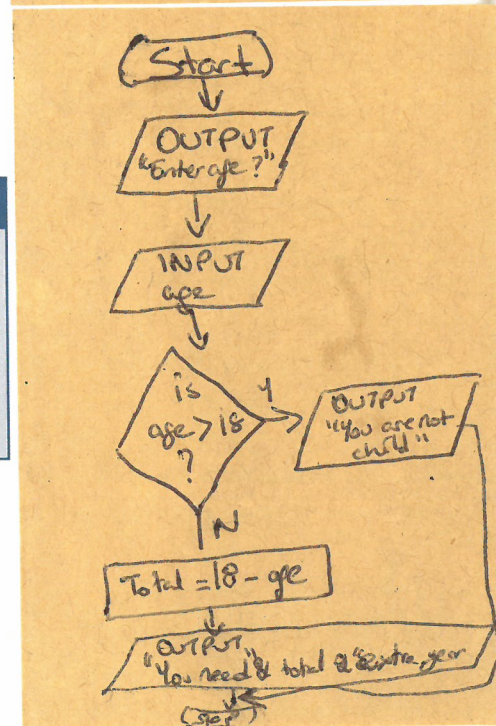 Start
OUTPUT
"Enter age ?"
INPUT
age
is
age > 18
?
Y
OUTPUT
"You are not
child"
N
Total = 18 - age
"OUTPUT"
"You need & total & " extra year
(stop)